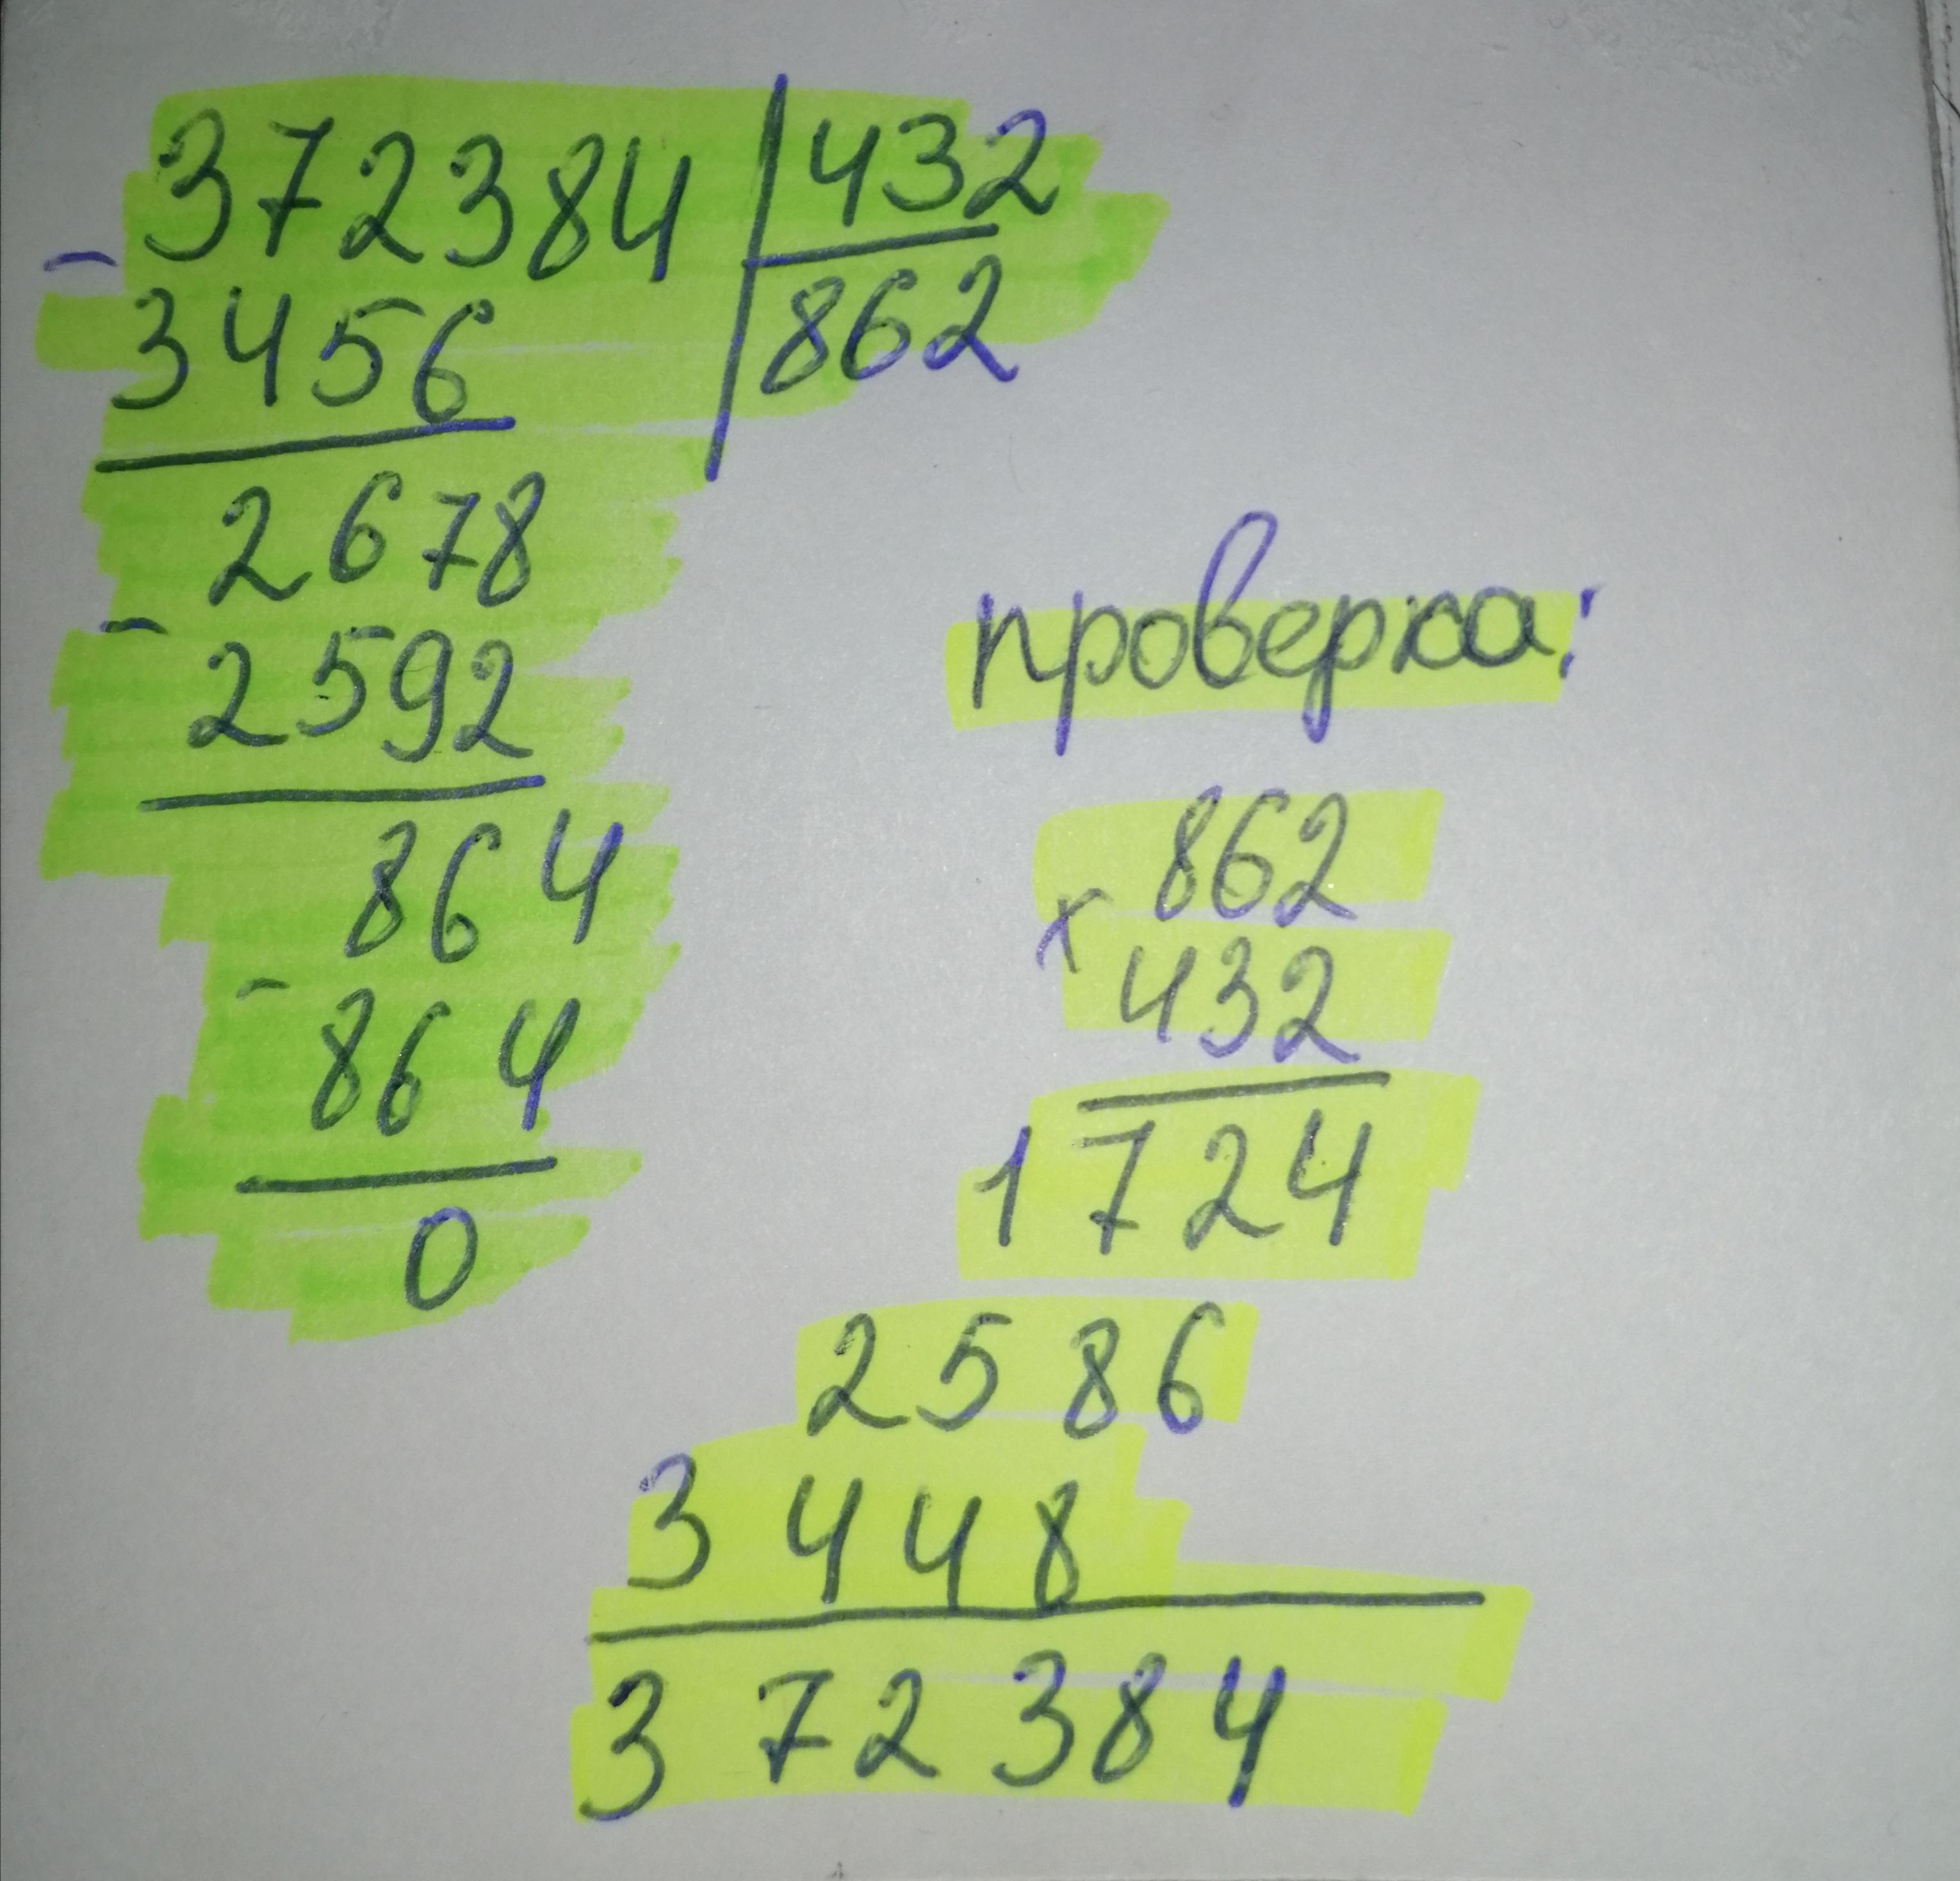 372384 | 432
- 3456 | 862
2678
- 2592
864
- 864
0
проверка:
862
x 432
1724
2586
3448
372384